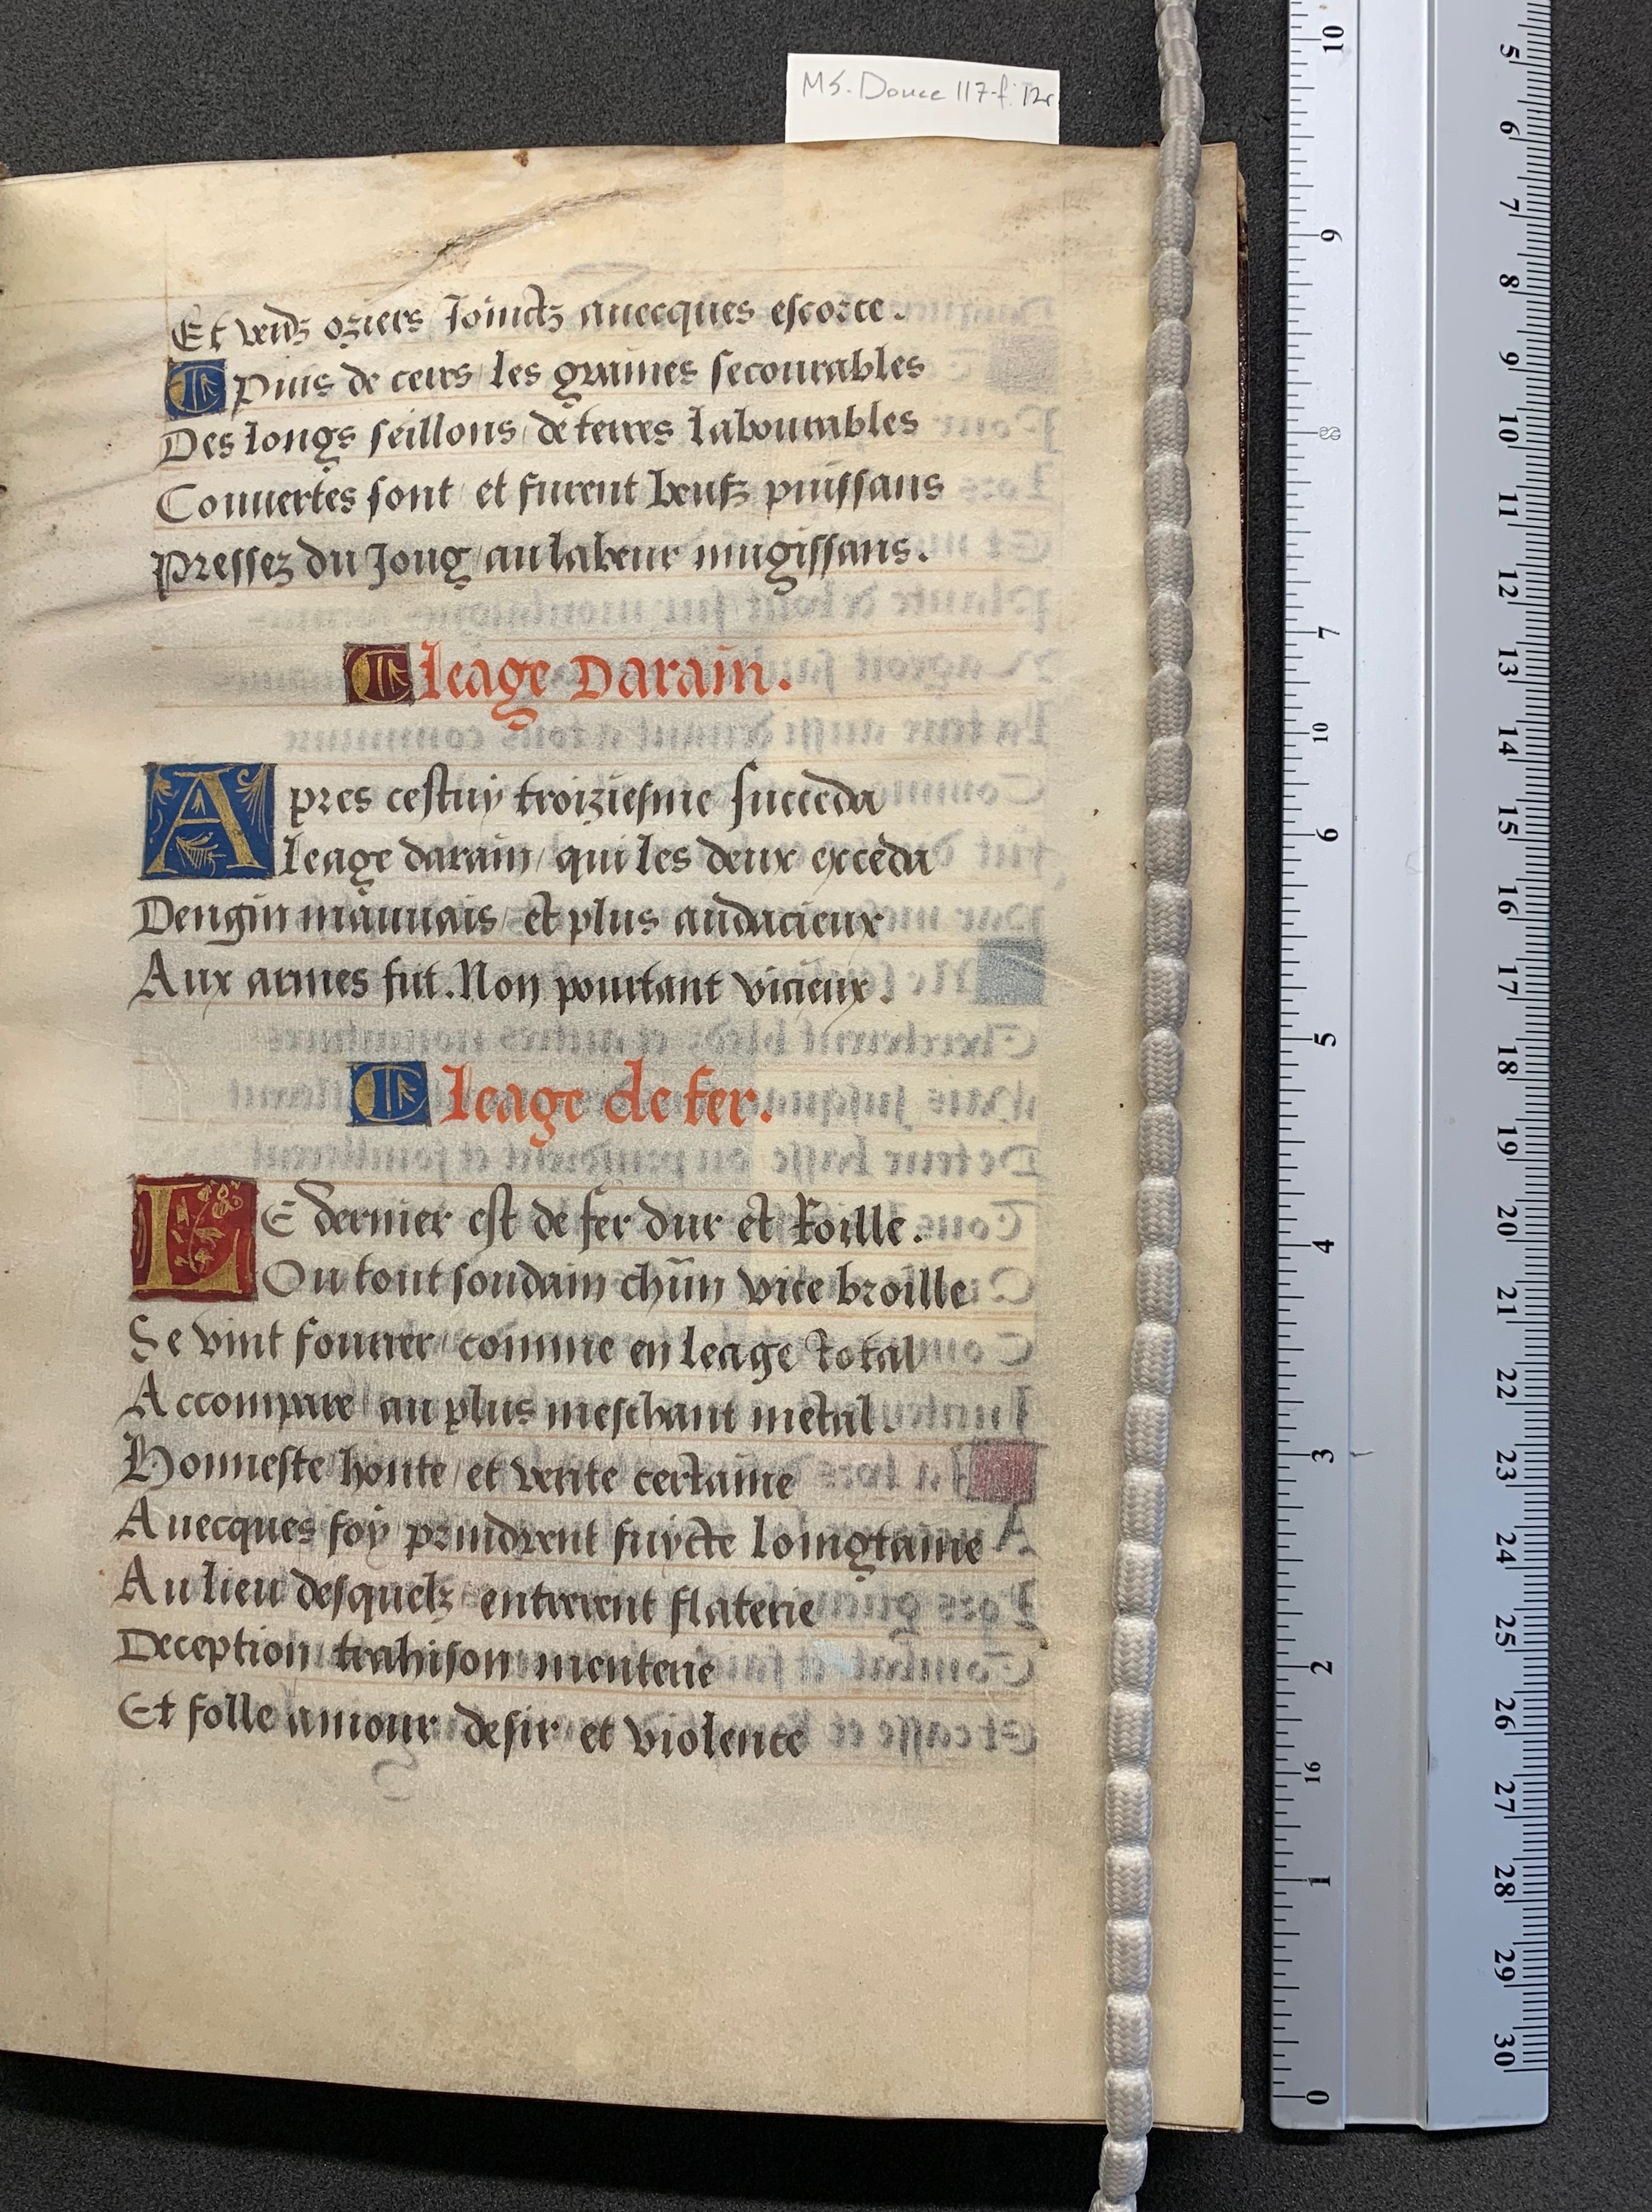 MS. Douce 117 f. 12r
Et verdz oziers Joinctz auecques escorce.
Puis de ceres / les graines secourables
Des longs seillons / de terres labourables
Couuertes sont / et furent beufz puissans
Pressez du Joug / au labeur mugissans.
Leage Darain.
Apres cestuy troiziesme succeda
Leage darain / qui les deux exceda
Dengin mauuais / et plus audacieux
Aux armes fut. Non pourtant vicieux.
Leage de fer.
LE dernier est de fer dur et Roille.
Ou tout soudain chũn vice broille
Se vint fourrer / comme en leage total
Accompare au plus meschant metal.
Honneste honte / et verite certaine
Auecques foy prindrent fuycte loingtaine
Au lieu desquelz entrerent flaterie
Deception trahison menterie
Et folle amour desir et violence
10
9
8
7
6
5
4
3
2
1
0
10
16
5
6
7
8
9
10
11
12
13
14
15
16
17
18
19
20
21
22
23
24
25
26
27
28
29
30